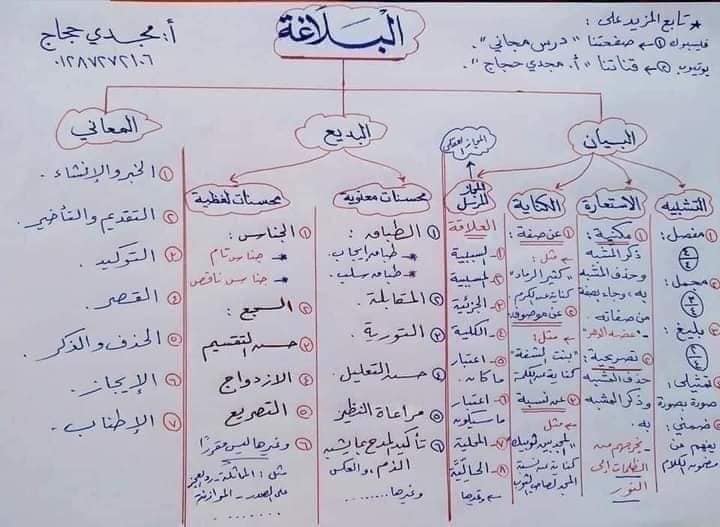 البَلَاغَة
* تابع المزيد على :
فيسبوك ① ← صفحتنا "درس مجاني".
يوتيوب ② ← قناتنا "أ. مجدي حجاج".
أ: مجدي حجاج
٠١٢٨٧٢٧٢١٠٦
البيان
التشبيه
① مفصل :
٤/٤
② مجمل :
٣/٤
③ بليغ :
٢/٤
④ تمثيلي :
صورة بصورة
⑤ ضمني :
يفهم من
مضمون الكلام
الاستعارة
① مكنية :
ذكر المشبه
وحذف المشبه
به وجاء بصفة
من صفاته
"عضه الدهر"
② تصريحية :
حذف المشبه
وذكر المشبه
به .
يخرجهم من
الظلمات إلى
النور
الكناية
① عن صفة :
← مثل :
"كثير الرماد"
كناية عن الكرم
② عن موصوف
← مثل :
"بنت الشفة"
كناية عن الكلمة
③ عن نسبة
← مثل
المجد بين ثوبيك
كناية عن نسبة
المجد لصاحب الثوب
المجاز العقلي
المجاز المرسل
العلاقة
١- السببية
٢- المسببية
٣- الجزئية
٤- الكلية
٥- اعتبار
ما كان .
٦- اعتبار
ما سيكون
٧- المحلية
٨- الحاليَّة
← وغيرها
البديع
محسنات معنوية
① الطباق :
* طباق إيجاب
* طباق سلب
② المقابلة .
③ التورية .
④ حسن التعليل .
⑤ مراعاة النظير
⑥ تأكيد المدح بما يشبه
الذم ، والعكس
وغيرها ........
محسنات لفظية
① الجناس :
* جناس تام
* جناس ناقص
② السجع :
③ حسن التقسيم
④ الازدواج
⑤ التصريع
⑥ وغيرها ليس مقررًا
مثل : المماثلة - رد العجز
على الصدر - الموازنة
........
المعاني
① الخبر والإنشاء .
② التقديم والتأخير .
③ التوكيد .
④ القصر .
⑤ الحذف والذكر .
⑥ الإيجاز .
⑦ الإطناب .